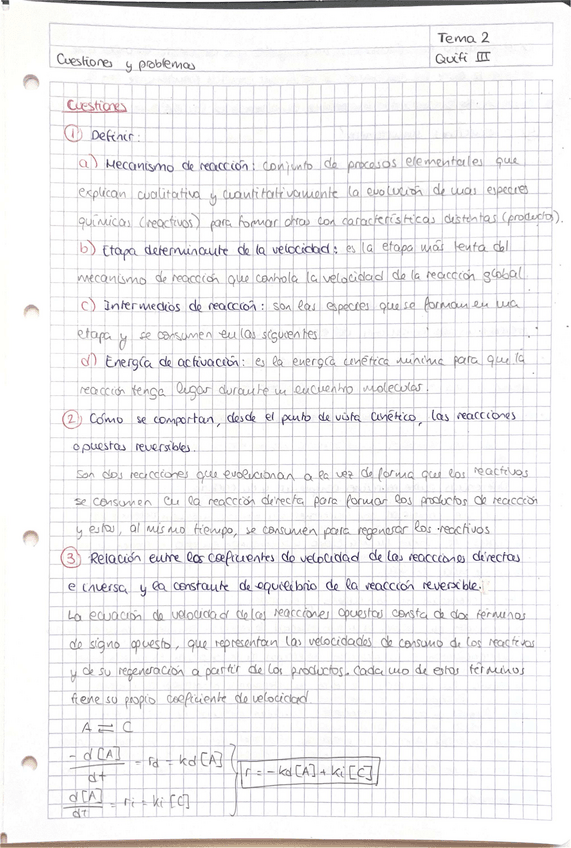 Tema 2
Cuestiones y problemas
Quifi III
Cuestiones
1 Definir:
a) Mecanismo de reacción: conjunto de procesos elementales que
explican cualitativa y cuantitativamente la evolución de unas especies
químicas (reactivos) para formar otras con características distintas (productos).
b) Etapa determinante de la velocidad: es la etapa más lenta del
mecanismo de reacción que controla la velocidad de la reacción global.
c) Intermedios de reacción: son las especies que se forman en una
etapa y se consumen en las siguientes
d) Energía de activación: es la energía cinética mínima para que la
reacción tenga lugar durante un encuentro molecular.
2 Cómo se comportan, desde el punto de vista cinético, las reacciones
opuestas reversibles.
Son dos reacciones que evolucionan a la vez de forma que los reactivos
se consumen en la reacción directa para formar los productos de reacción
y estos, al mismo tiempo, se consumen para regenerar los reactivos
3 Relación entre los coeficientes de velocidad de las reacciones directas
e inversa y la constante de equilibrio de la reacción reversible.
La ecuación de velocidad de las reacciones opuestas consta de dos términos
de signo opuesto, que representan las velocidades de consumo de los reactivos
y de su regeneración a partir de los productos. Cada uno de estos términos
tiene su propio coeficiente de velocidad
A ⇌ C
-d[A]/dt = rd = kd [A]
r = -kd[A] + ki[C]
d[A]/dt = ri = ki [C]